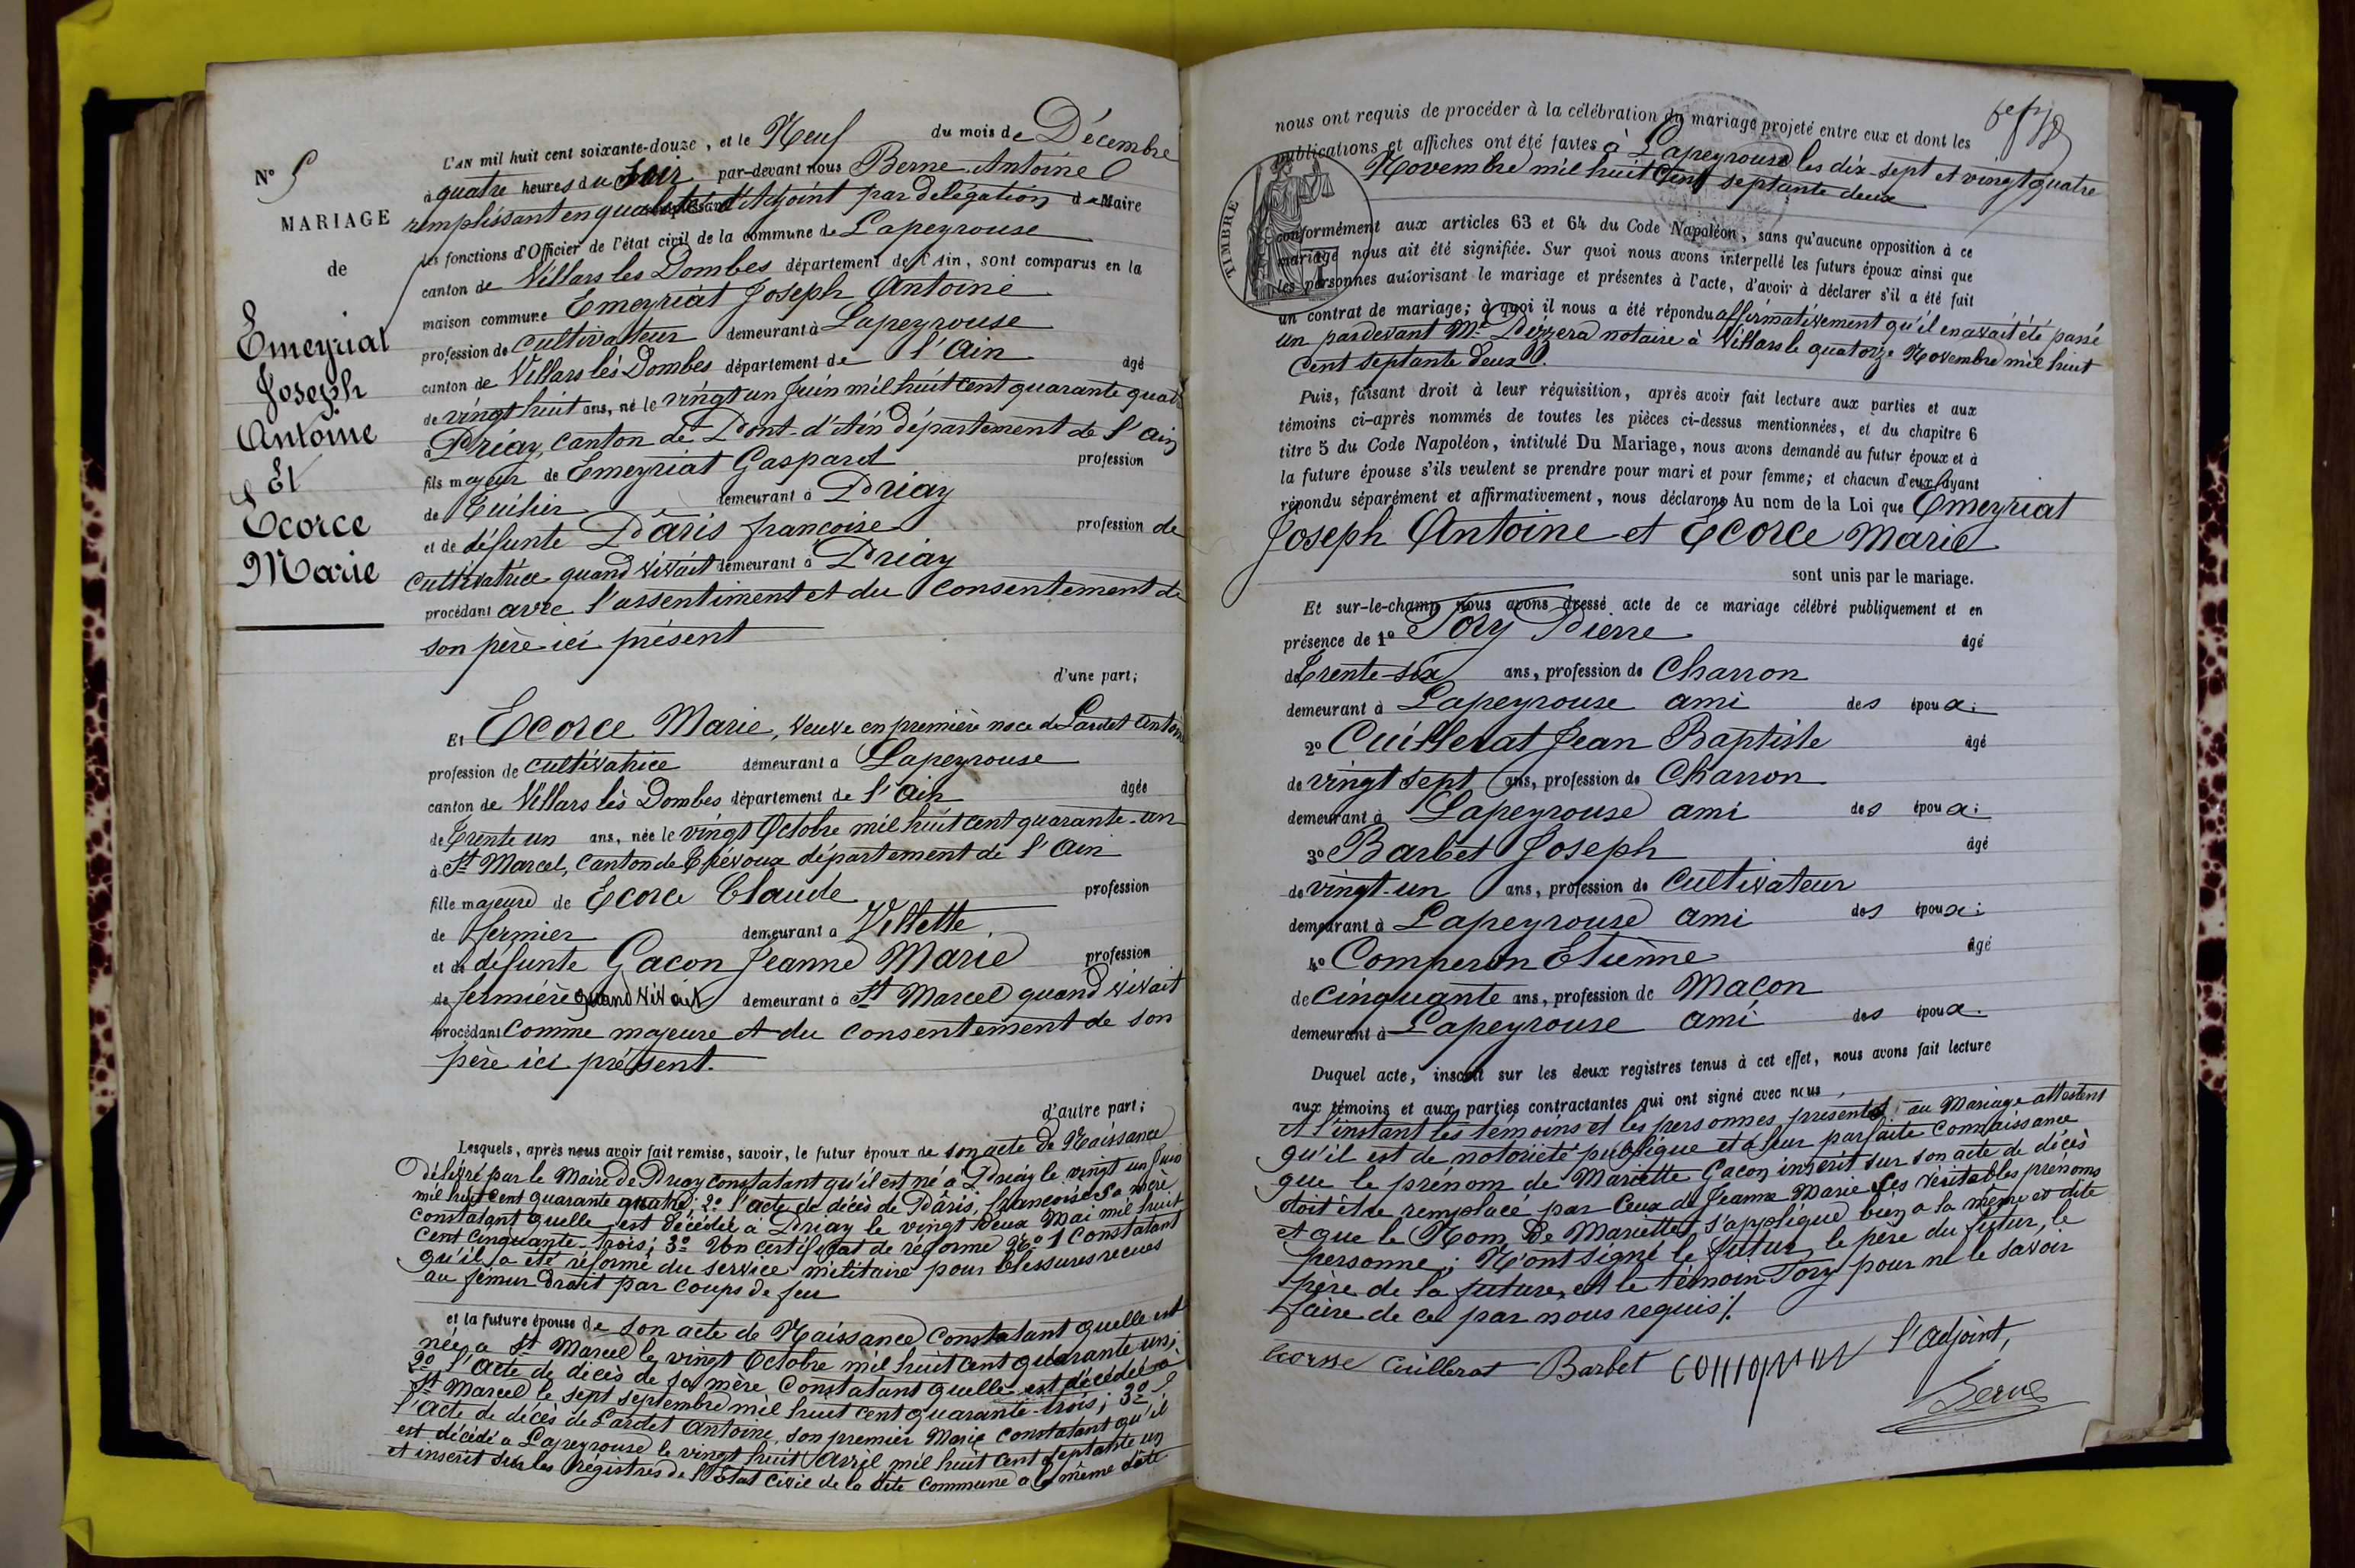 L'AN mil huit cent soixante-douze, et le Neuf du mois de Décembre
à quatre heures du Soir par-devant nous Berne Antoine
remplissant en qualité d'Adjoint par délégation du Maire
les fonctions d'Officier de l'état civil de la commune de Lapeyrouse
canton de Villars les Dombes département de l'Ain, sont comparus en la
maison commune Emeyriat Joseph Antoine
profession de cultivateur demeurant à Lapeyrouse
canton de Villars lès Dombes département de l'Ain âgé
de vingt huit ans, né le vingt un Juin mil huit cent quarante quatre
à Priay, canton de Pont-d'Ain département de l'Ain
fils majeur de Emeyriat Gaspard profession
de Tuilier demeurant à Priay
et de défunte Pâris françoise profession de
cultivatrice quand vivait demeurant à Priay
procédant avec l'assentiment et du consentement de
son père ici présent
d'une part;
N° 5
MARIAGE
de
Emeyriat
Joseph
Antoine
Et
Ecorce
Marie
Et Ecorce Marie, veuve en première noce de Lardet Antoine
profession de cultivatrice demeurant à Lapeyrouse
canton de Villars lès Dombes département de l'Ain âgée
de Trente un ans, née le vingt Octobre mil huit cent quarante-un
à St Marcel, canton de Trévoux département de l'Ain
fille majeure de Ecorce Claude profession
de fermier demeurant à Villette
et de défunte Gacon Jeanne Marie profession
de fermière quand vivait demeurant à St Marcel quand vivait
procédant comme majeure et du consentement de son
père ici présent.
d'autre part;
Lesquels, après nous avoir fait remise, savoir, le futur époux de son acte de Naissance
délivré par le Maire de Priay constatant qu'il est né à Priay le vingt un Juin
mil huit cent quarante quatre; 2° l'acte de décès de Pâris, françoise sa mère
constatant quelle est décédée à Priay le vingt deux Mai mil huit
cent cinquante-trois; 3° Un certificat de réforme N° 1 constatant
qu'il a été réformé du service militaire pour blessures recues
au fémur droit par coups de feu
et la future épouse de son acte de Naissance constatant quelle est
née a St Marcel le vingt Octobre mil huit cent quarante un;
2° l'acte de décès de sa mère constatant quelle est décédée à
St Marcel le sept septembre mil huit cent quarante-trois; 3°
l'acte de décès de Lardet Antoine, son premier Marie constatant qu'il
est décédé a Lapeyrouse le vingt huit Avril mil huit cent septante un
et inscrit sur les régistres de l'Etat civil de la dite commune a la même date
nous ont requis de procéder à la célébration du mariage projeté entre eux et dont les
publications et affiches ont été faites à Lapeyrouse les dix-sept et vingt quatre
Novembre mil huit cent septante deux
TIMBRE
conformément aux articles 63 et 64 du Code Napoléon, sans qu'aucune opposition à ce
mariage nous ait été signifiée. Sur quoi nous avons interpellé les futurs époux ainsi que
les personnes autorisant le mariage et présentes à l'acte, d'avoir à déclarer s'il a été fait
un contrat de mariage; à quoi il nous a été répondu affirmativement qu'il en avait été passé
un pardevant Me notaire à Villars le quatorze Novembre mil huit
cent septante deux.
Puis, faisant droit à leur réquisition, après avoir fait lecture aux parties et aux
témoins ci-après nommés de toutes les pièces ci-dessus mentionnées, et du chapitre 6
titre 5 du Code Napoléon, intitulé Du Mariage, nous avons demandé au futur époux et à
la future épouse s'ils veulent se prendre pour mari et pour femme; et chacun d'eux ayant
répondu séparément et affirmativement, nous déclarons Au nom de la Loi que Emeyriat
Joseph Antoine et Ecorce Marie
sont unis par le mariage.
Et sur-le-champ nous avons dressé acte de ce mariage célébré publiquement et en
présence de 1° Tory Pierre âgé
de Trente-six ans, profession de Charron
demeurant à Lapeyrouse ami des époux;
2° Cuillerat Jean Baptiste âgé
de vingt sept ans, profession de Charron
demeurant à Lapeyrouse ami des époux;
3° Barbet Joseph âgé
de vingt-un ans, profession de Cultivateur
demeurant à Lapeyrouse ami des époux;
4° Comperon Etienne âgé
de cinquante ans, profession de Macon
demeurant à Lapeyrouse ami des époux.
Duquel acte, inscrit sur les deux registres tenus à cet effet, nous avons fait lecture
aux témoins et aux parties contractantes qui ont signé avec nous,
et l'instant les témoins et les personnes présentes au Mariage attestent
qu'il est de notoriété publique et à leur parfaite connaissance
que le prénom de Mariette Gacon inscrit sur son acte de décès
doit être remplacé par ceux de Jeanne Marie ses véritables prénoms
et que le Nom de Mariette s'applique bien a la même et dite
personne; N'ont signé le futur, le père du futur, le
père de la future, et le témoin Tory pour ne le savoir
faire de ce par nous requis ./.
Ecorsse Cuillerat Barbet l'adjoint,
Berne